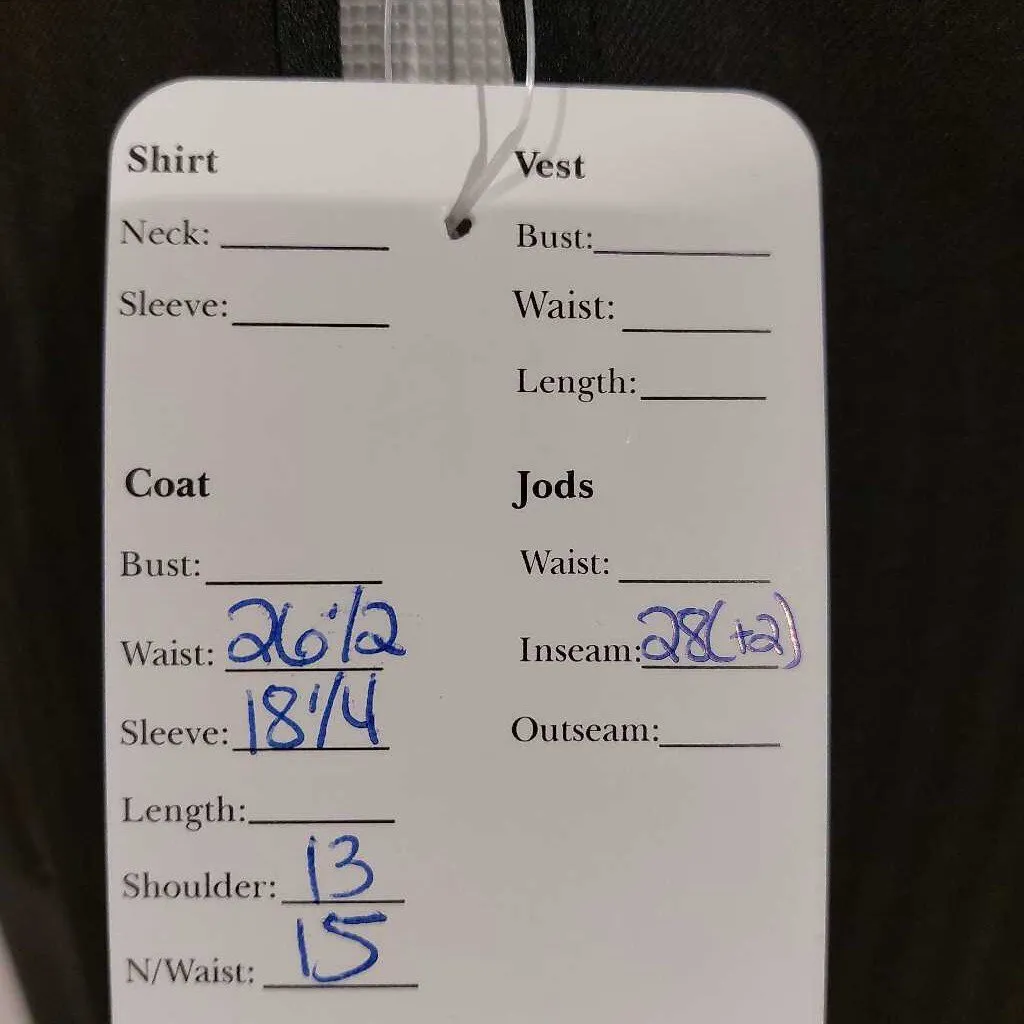 Shirt
Neck:
Sleeve:
Vest
Bust:
Waist:
Length:
Coat
Bust:
Waist: 26 1/2
Sleeve: 18 1/4
Length:
Shoulder: 13
N/Waist: 15
Jods
Waist:
Inseam: 28(+2)
Outseam: